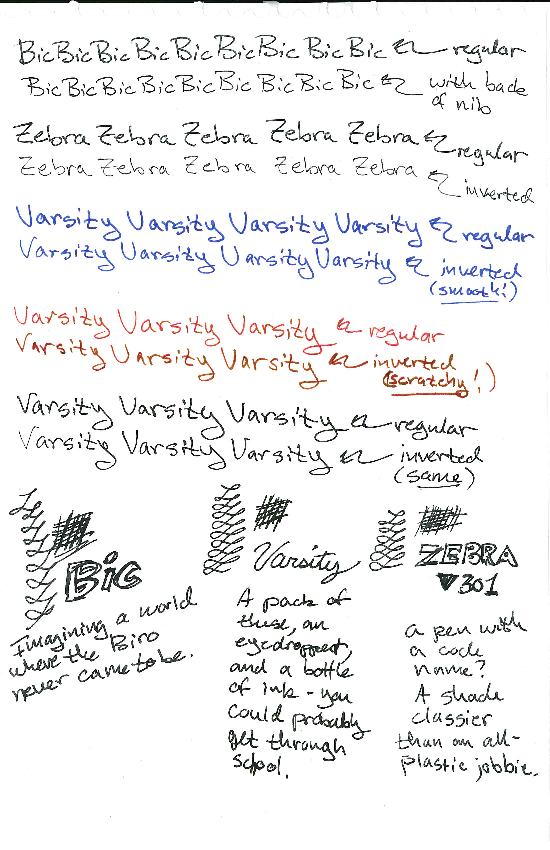 BicBicBic Bic Bic Bic Bic Bic Bic regular
Bic Bic Bic Bic Bic Bic Bic Bic Bic with back
of nib
Zebra Zebra Zebra Zebra Zebra regular
Zebra Zebra Zebra Zebra Zebra inverted
Varsity Varsity Varsity Varsity regular
Varsity Varsity Varsity Varsity inverted
(smooth!)
Varsity Varsity Varsity regular
Varsity Varsity Varsity inverted
(scratchy!)
Varsity Varsity Varsity regular
Varsity Varsity Varsity inverted
(same)
Bic
Imagining a world
where the Biro
never came to be.
Varsity
A pack of
these, an
eyedropper,
and a bottle
of ink - you
could probably
get through
school.
ZEBRA
301
a pen with
a code
name?
A shade
classier
than an all-
plastic jobbie.